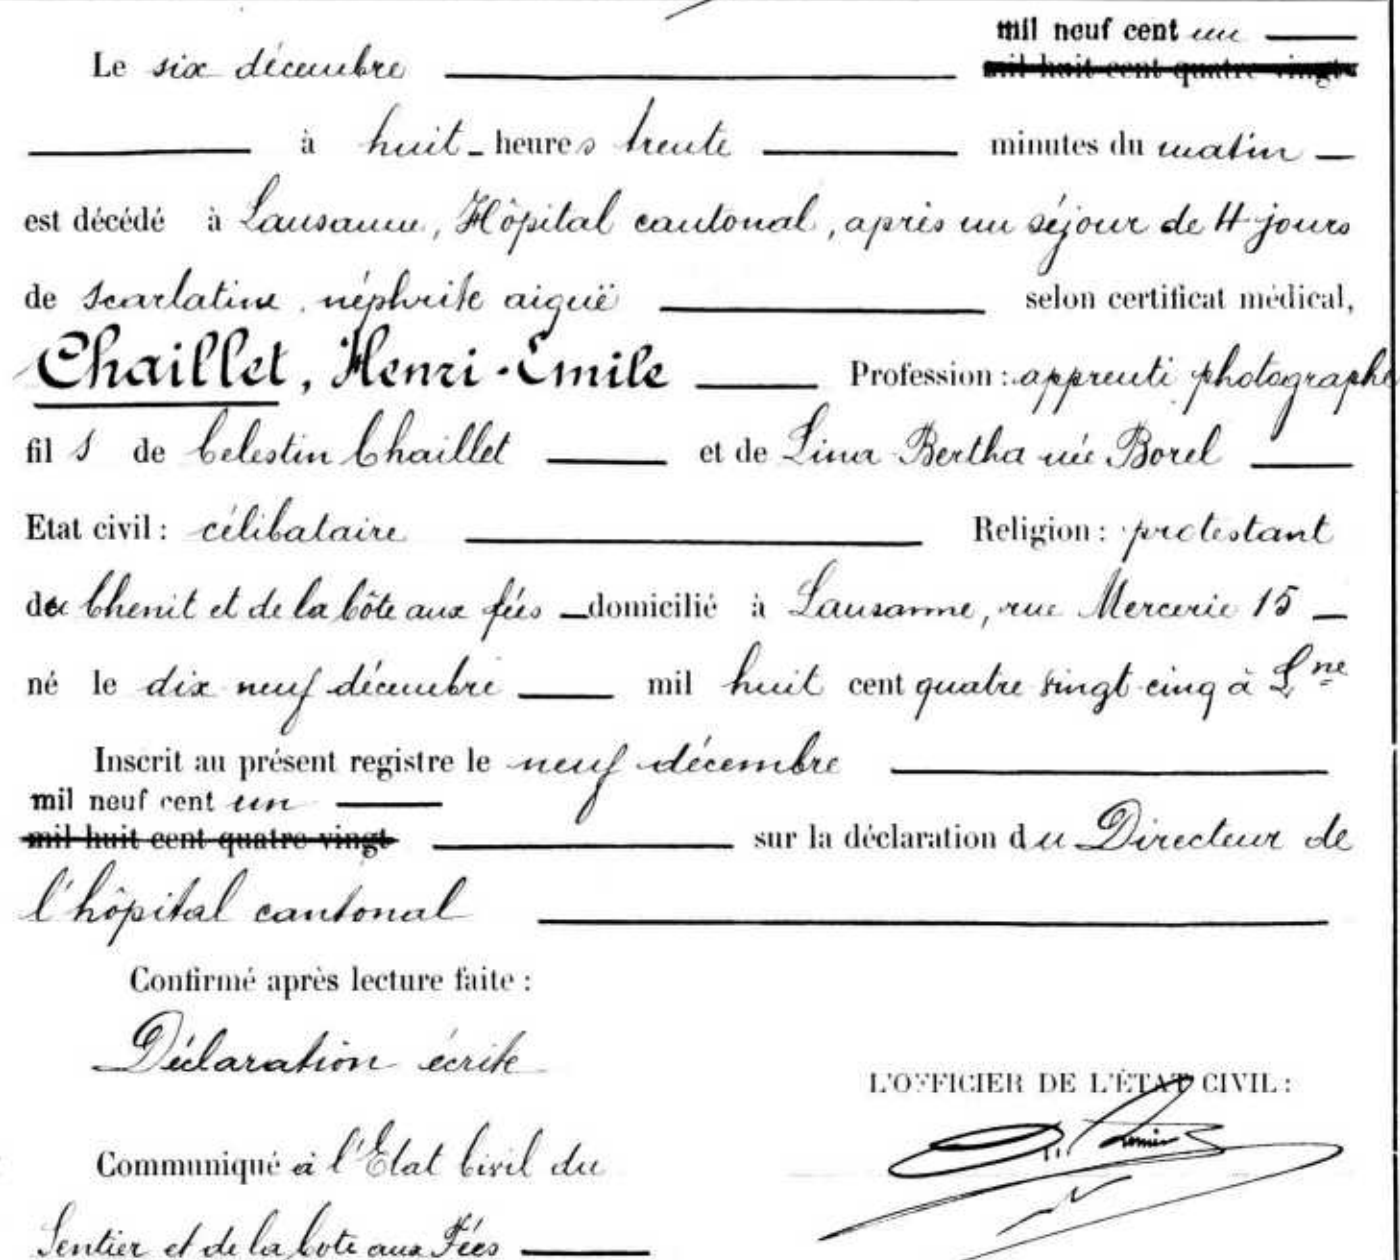 mil neuf cent un
Le six décembre mil huit cent quatre vingt
à huit heures trente minutes du matin
est décédé à Lausanne, Hôpital cantonal, après un séjour de 4 jours
de scarlatine, néphrite aiguë selon certificat médical,
Chaillet, Henri-Emile Profession : apprenti photographe
fils de Celestin Chaillet et de Lina Bertha née Borel
Etat civil : célibataire Religion : protestant
du Chenit et de la Côte aux fées domicilié à Lausanne, rue Mercerie 15
né le dix neuf décembre mil huit cent quatre vingt cinq à Lne
Inscrit au présent registre le neuf décembre
mil neuf cent un
mil huit cent quatre vingt sur la déclaration du Directeur de
l'hôpital cantonal
Confirmé après lecture faite :
Déclaration écrite
L'OFFICIER DE L'ÉTAT CIVIL :
Communiqué à l'Etat Civil du
Sentier et de la Cote aux Fées